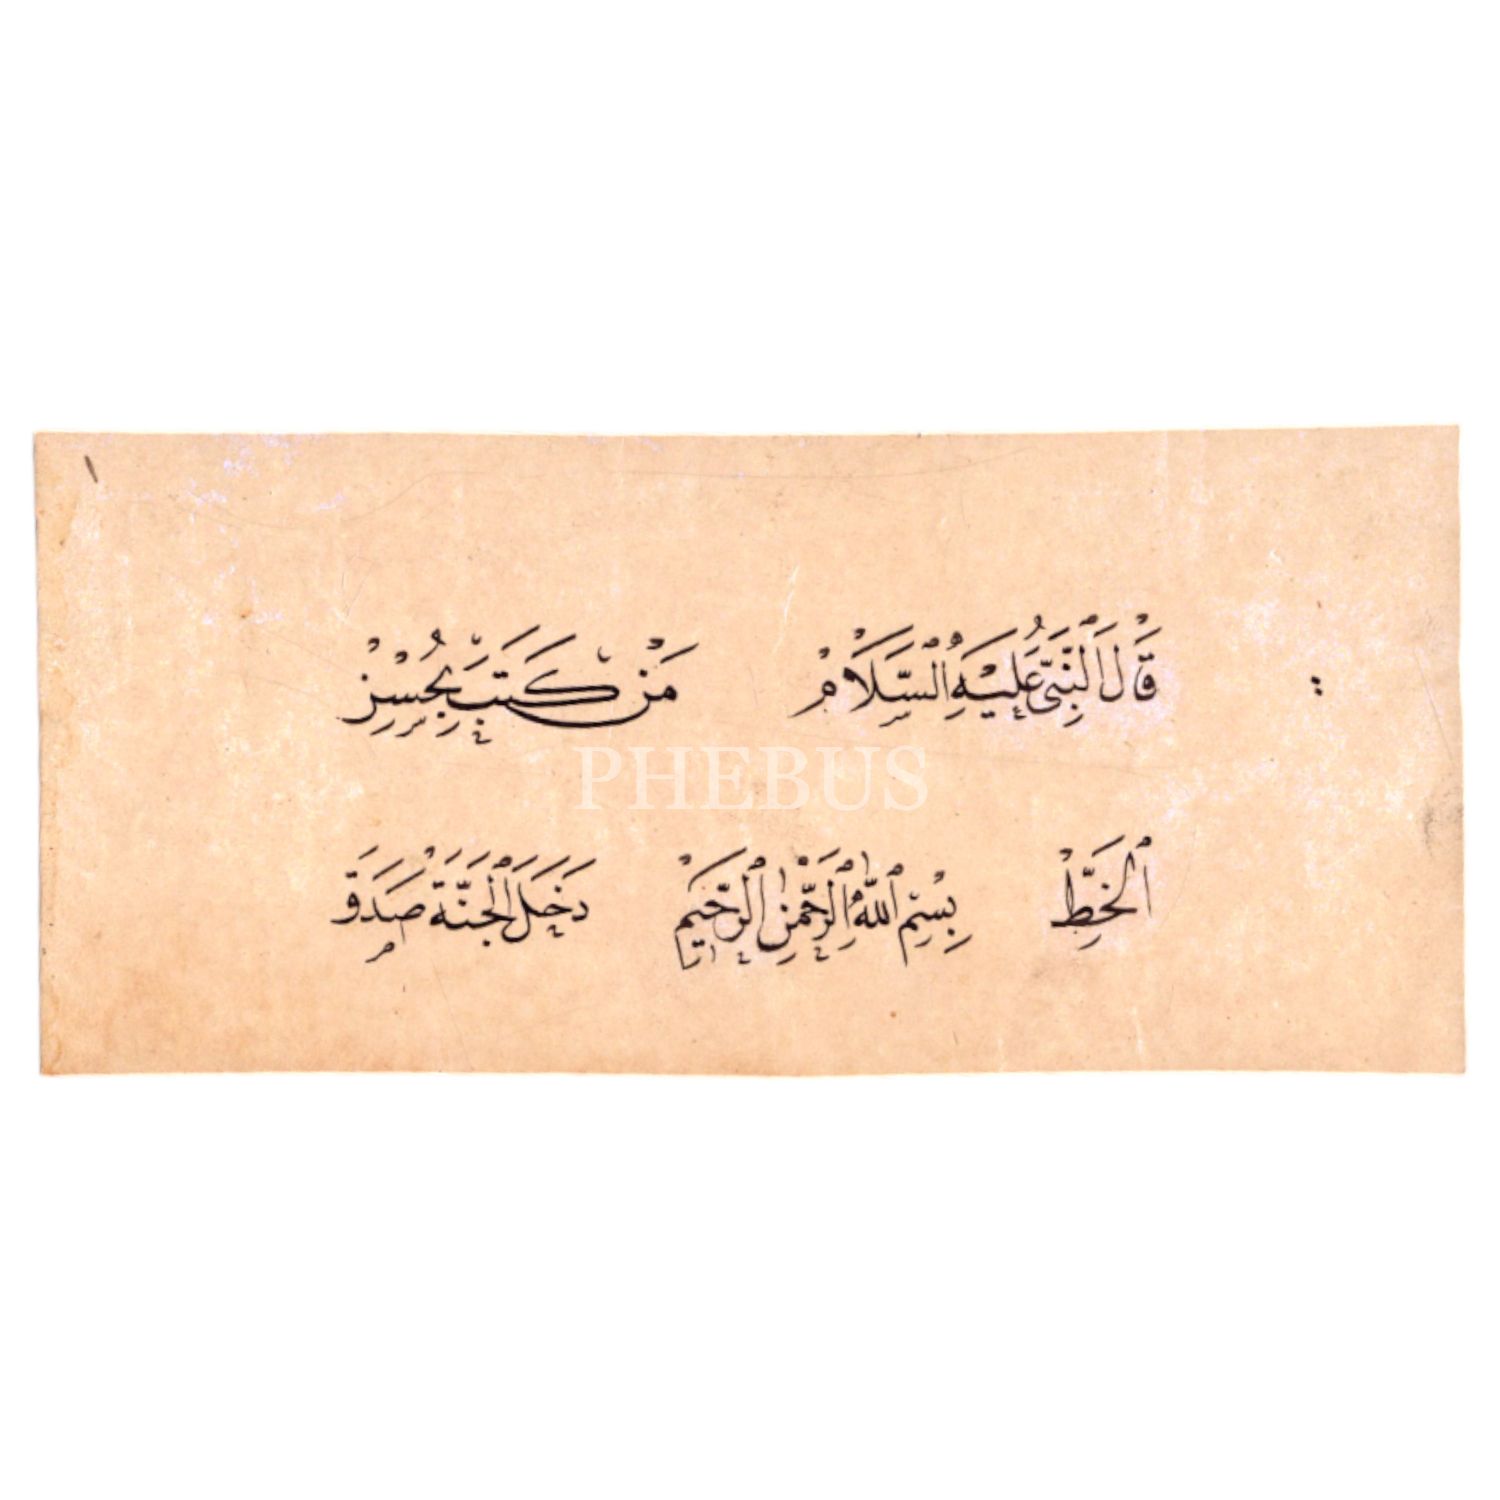 قَالَ النَّبِيُّ عَلَيْهِ السَّلَامْ مَنْ كَتَبَ بِحُسْنِ
PHEBUS
الْخَطِّ بِسْمِ اللّٰهِ الرَّحْمٰنِ الرَّحِيمْ دَخَلَ الْجَنَّةَ صَدَقَ